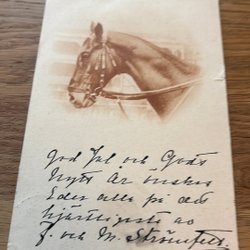 God Jul och Godt
Nytt År önskas
Eder alla på det
hjärtligaste av
J. och M. Strömfelt